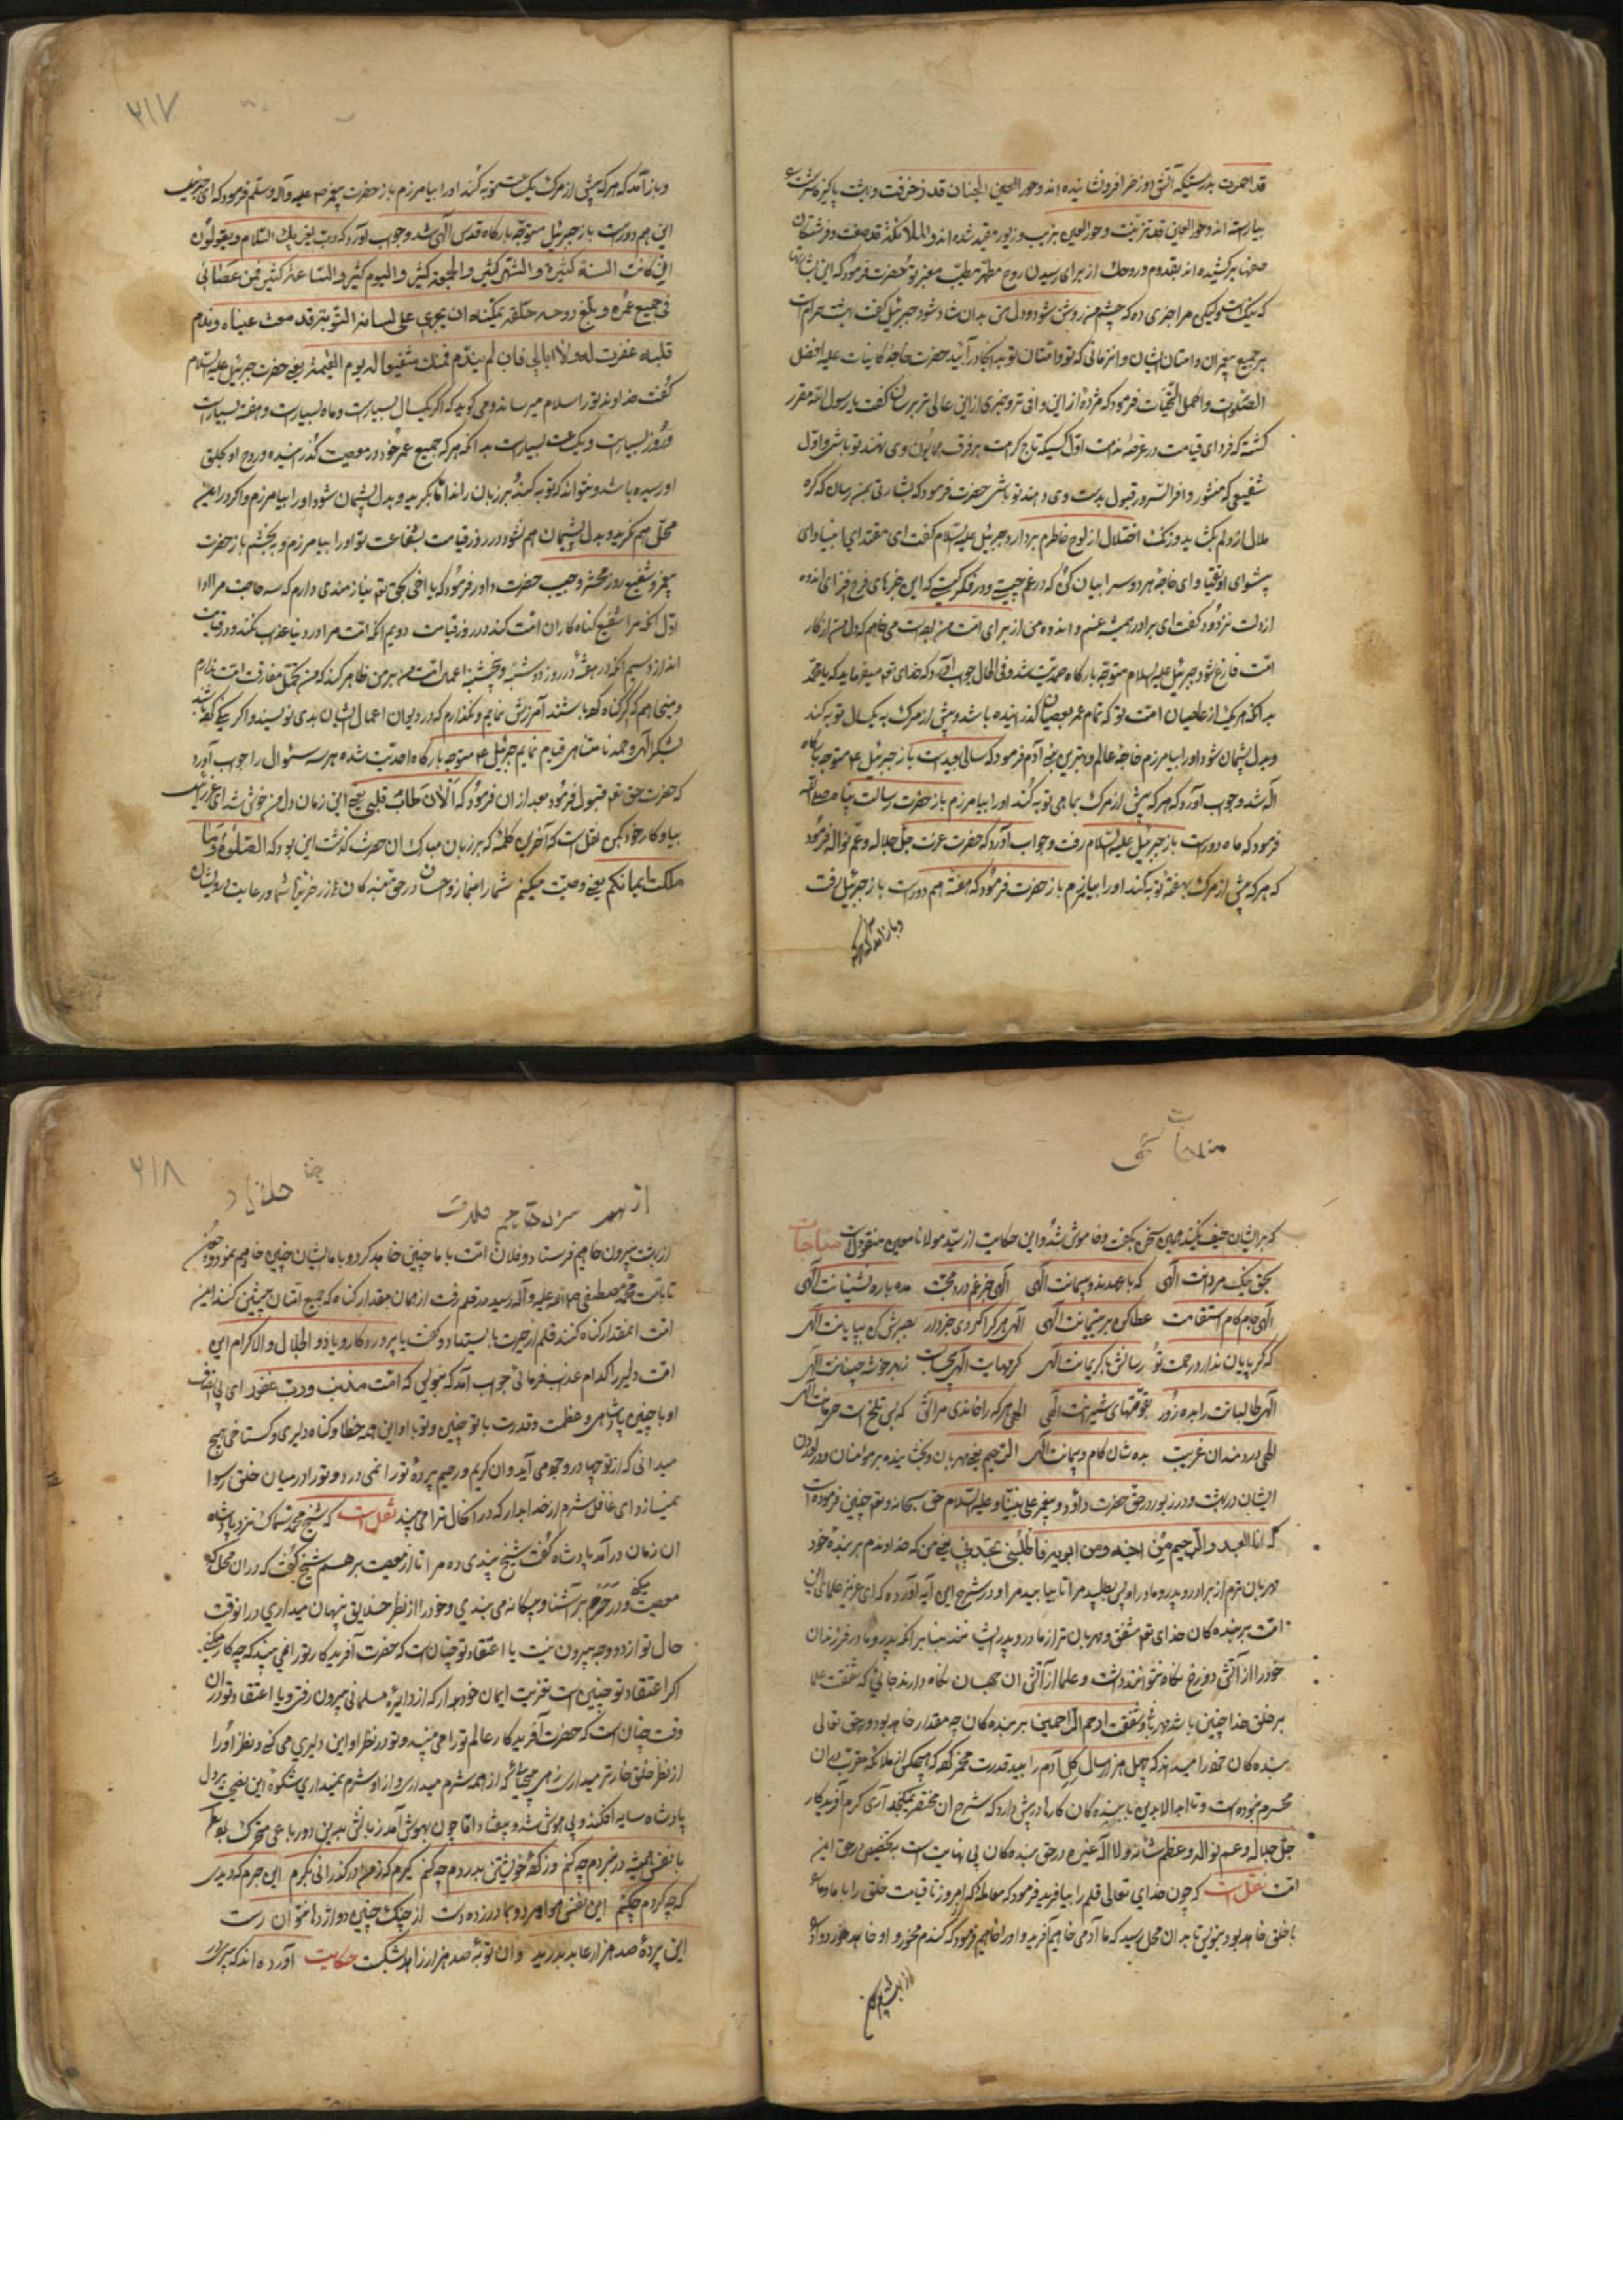 قد اخمدت بدرستیکه آتش دوزخ را فرونشانیده اند وحور العین الجنان قد زخرفت وبهشت پاکیزه سرشت
بیاراسته اند وحور العین قد تزینت وحور العین بزیب وزیور مقید شده اند والملائکة قد صفت وفرشتگان
صفها برکشیده اند بقدوم روحک از برای رسیدن روح مطهر مطیب معنبر تو حضرت فرمود که این بشارتها
که نیک است ولیکن مرا خبری ده که چشم من روشن شود ودل من بدان شاد شود جبرئیل گفت بهشت حرامست
بر جمیع پیغمبران وامتان ایشان تا زمانی که تو وامتان تو به انجا درآیید حضرت خواجه کاینات علیه افضل
الصلوات واکمل التحیات فرمود که مژده از این وافی تر وخبری از این عالی تر برسان گفت یا رسول الله مقرر
گشته که فردای قیامت در عرصه ندامت اول کسیکه تاج کرامت بر فرق همایون وی نهند تو باشی واول
شفیعی که منشور وافر السرور قبول بدست وی دهند تو باشی حضرت فرمود که بشارتی بمن رسان که گره
ملال از دلم بگشاید وزنگ اختلال از لوح خاطرم بردارد جبرئیل علیه السلام گفت ای مقتدای انبیا وای
پیشوای اتقیا وای خواجه هر دو سرا بیان کن که در غم چیستی ودر فکر کیستی که این خبرهای فرح فزای اندوه
از دلت نزدود گفت ای برادر همیشه غم واندوه من از برای امت من بوده است می خواهم که دل من از کار
امت فارغ شود جبرئیل علیه السلام متوجه بارگاه صمدیت شد وفی الحال جواب آورد که خدای تعم میفرماید که یا محمد
بدانکه هر یک از عاصیان امت تو که تمام عمر بعصیان گذرانیده باشد وپیش از مرگ به یکسال توبه کند
وبدل پشیمان شود اورا بیامرزم خواجه عالم وبهترین بنی آدم فرمود که سالی بعید است باز جبرئیل ع متوجه بارگاه
اله شد وجواب آورد که هر که پیش از مرگ بماهی توبه کند اورا بیامرزم باز حضرت رسالت پناه صلی الله
فرمود که ماه دور است باز جبرئیل علیه السلام رفت وجواب آورد که حضرت عزت جل جلاله وعم نواله فرمود
که هر که پیش از مرگ بهفتهٔ توبه کند اورا بیامرزم باز حضرت فرمود که هفته هم دور است باز جبرئیل رفت
وباز آمد که هر که
۲۱۷
وباز آمد که هر که پیش از مرگ یک توبه کند اورا بیامرزم باز حضرت پیغمبر صم علیه وآله وسلم فرمود که ای جبرئیل
این هم دور است باز جبرئیل متوجه بارگاه قدس الهی شد وجواب آورد که ربک یقرئک السلام ویقولون
ان کانت السنة کثیرة والشهر کثیر والجمعة کثیر والیوم کثیر والساعة کثیر فمن عصانی
فی جمیع عمره وبلغ روحه حلقه تمکنه ان یجری علی لسانه التوبة قد دمعت عیناه وندم
قلبه غفرت له ولا ابالی فان لم یندم فمنک شفیعا له یوم القیمة یعنی حضرت جبرئیل علیه السلام
گفت خداوند تورا سلام میرساند ومی گوید که اگر یکسال بسیار است وماه بسیار است وهفته بسیار است
وروز بسیار است ویکساعت بسیار است بدانکه هر که جمیع عمر خود در معصیت گذرانیده وروح او بحلق
او رسیده باشد ونتواند که توبه کند بر زبان راند اما بگرید وبدل پشیمان شود اورا بیامرزم واگر در این
محل هم نگرید وبدل پشیمان هم نشود در روز قیامت بشفاعت تو اورا بیامرزم وبه بخشم باز حضرت
پیغمبر وشفیع روز محشر وحبیب حضرت داور فرمود که یا اخی بحق تعم نیازمندی دارم که سه حاجت مرا روا
اول آنکه مرا شفیع گناه کاران امت کند در روز قیامت دویم آنکه امت مرا در دنیا عذاب نکند ودر قیامت
اندازد سیم آنکه در هفته در روز دوشنبه وپنجشنبه اعمال امت من بر من ظاهر کند که من تحمل مفارقت امت ندارم
ومیخواهم که اگر گناه کرده باشند آمرزش نمایم ونگذارم که در دیوان اعمال ایشان بدی نویسند واگر نیکی کرده باشند
بشکر الهی وحمد نامتناهی قیام نمایم جبرئیل ع متوجه بارگاه احدیت شده هر سه سئوال را جواب آورد
که حضرت حق تعم قبول فرمود بعد از ان فرمود که الان طاب قلبی یعنی این زمان دل من خوش شد ای عزرائیل
بیا وکار خود کن نقل است که آخرین کلمه که بر زبان مبارک ان حضرت گذشت این بود که الصلوة وما
ملکت ایمانکم یعنی وصیت میکنم شمارا بنماز واحسان در حق بندگان
وباز آمد
مناجات
که بر ایشان حیف نکنید همین سخن بگفت وخاموش شد واین حکایت از سید مولانا معین منقول است مناجات
بحق نیک مردانت الهی که با عهدند وپیمانت الهی الهی جز غم درد محبت مده با ره نشینانت الهی
الهی جام کام استقامت عطا کن بر یتیمانت الهی الهی هر کرا کردی جز دار بصیرش کن ببینانت الهی
که گر پایان ندارد رحمت تو رسانش با کریمانت الهی
الهی طالبانت را بده زور بقوتهای شیرانت الهی الهی هر که را خواندی مرانش که بس تلخ است حرمانت الهی
الهی دردمندان غریب بده شان کام وپیمانت الهی الرحیم یعنی مهربان وبخشاینده بر مؤمنان ودر آوردن
ایشان در بهشت ودر زبور در حق حضرت داؤد وپیغمبر علی نبینا وعلیه السلام حق سبحانه وتعم چنین فرموده است
که انا العبد والرحیم من اخیه ومن ابویه فاطلبنی تجدنی یعنی من که خداوندم بر بنده خود
مهربان ترم از برادر وپدر ومادر او پس بطلبید مرا تا بیابید مرا ودر شرح این آیه آورده که ای عزیز علمای این
امت بر بنده گان خدای تعم مشفق ومهربان تر از مادر وپدر ایشانند بنا بر آنکه پدر ومادر فرزندان
خودرا از آتش دوزخ نگاه نتوانند داشت وعلما از آتش ان جهان نگاه دارند جائی که شفقت علما
بر خلق خدا چنین باشد مهربانی وشفقت ارحم الراحمین بر بنده گان چه مقدار خواهد بود وحق تعالی
بنده گان خودرا میداند که چهل هزار سال گل آدم را بید قدرت مخمر کرد که هیچکس از ملائکه مقرب در ان
محرم نبوده است وتا ابد الابدین با بنده گان کارها در پیش دارد که شرح ان مختصر نگنجد آری کرم آفریدگار
جل جلاله وعم نواله وعظم شانه ولا اله غیره در حق بنده گان بی نهایت است به تخصیص در حق این
امت نقل است که چون خدای تعالی قلم را بیافرید فرمود که معامله که امروز تا قیامت خلق را با ما وما
با خلق خواهد بود بنویس تا بدان محل رسید که ما آدمی خواهیم آفرید واورا خواهیم فرمود که گندم مخور واو خواهد خورد واو
از بهشت بیرون
۲۱۸
از بهشت بیرون خواهیم فرستاد وفلان امت با ما چنین خواهد کرد وما با ایشان چنین خواهیم نمود
تا بامت محمد مصطفی صم الله علیه وآله رسید در قلم رفت از همان مقدار گناه که جمیع امتان پیشین کنند این
امت انمقدار گناه کنند قلم از حیرت بایستاد وگفت یا پروردگار ویا ذو الجلال والاکرام این
امت دلیر را کدام عذاب فرمائی جواب آمد که بنویس که امت مذنب ورب غفور ای بی انصاف
او با چنین پادشاهی وعظمت وقدرت با تو چنین وتو با او این همه خطا وگناه دلیری وگستاخی هیچ
میدانی که از تو چها در وجود می آید وان کریم ورحیم پردهٔ تورا نمی درد وتورا در میان خلق رسوا
نمیسازد ای غافل شرم از خدا بدار که در آنحال ترا می بیند نقل است که شیخ محمد سماک نزد پادشاه
ان زمان در آمد پادشاه گفت شیخ پندی ده مرا تا از معصیت برهم شیخ گفت که در ان محل که
معصیت میکنی ودر حرم بر آشنا وبیگانه می بندی وخودرا از نظر خلایق پنهان میداری در انوقت
حال تو از دو وجه بیرون نیست یا اعتقاد تو چنان است که حضرت آفریدگار تورا نمی بیند که چه کار میکنی
اگر اعتقاد تو چنین است تعزیت ایمان خود بدار که از دایرهٔ مسلمانی بیرون رفتی ویا اعتقاد تو در ان
وقت چنان است که حضرت آفریدگار عالم تورا می بیند وتو در نظر او این دلیری می کنی ونظر اورا
از نظر خلق خوارتر میداری زهی بیحیائی که از همه شرم میداری واز او شرم نمیداری شکوه این نصیحت بر دل
پادشاه سایه افکند وبی هوش شد وبیفتاد اما چون بهوش آمد زبانش بدین دو رباعی متحرک بود
با نفس همیشه در نبردم چه کنم وز کردهٔ خویشتن بدردم چه کنم گیرم که ز من در گذرانی بکرم این شرم که دیدی
که چه کردم چکنم این نفس هوا در زده دست از چنگ چنین دو اژدها نتوان رست
این پردهٔ صد هزار عابد بدرید وان توبهٔ صد هزار زاهد بشکست حکایت آورده اند که